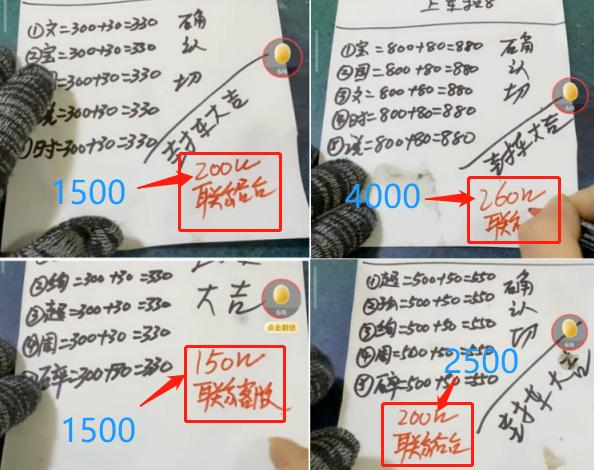 ①文=300+30=330
②宝=300+30=330
周=300+30=330
说=300+30=330
时=300+30=330
确
认
切
封车大吉
6/6
1500
200U
联络台
上车
①宝=800+80=880
②周=800+80=880
③文=800+80=880
④时=800+80=880
⑤说=800+80=880
确
认
切
封车大吉
6/6
4000
260U
联
②绚=300+30=330
③超=300+30=330
④周=300+30=330
⑤石碎=300+30=330
大吉
6/6
点击翻倍
1500
150U
联系客服
①超=500+50=550
=500+50=550
③绚=500+50=550
④周=500+50=550
⑤石碎=500+50=550
确
认
切
封车大吉
6/6
2500
200U
联络台